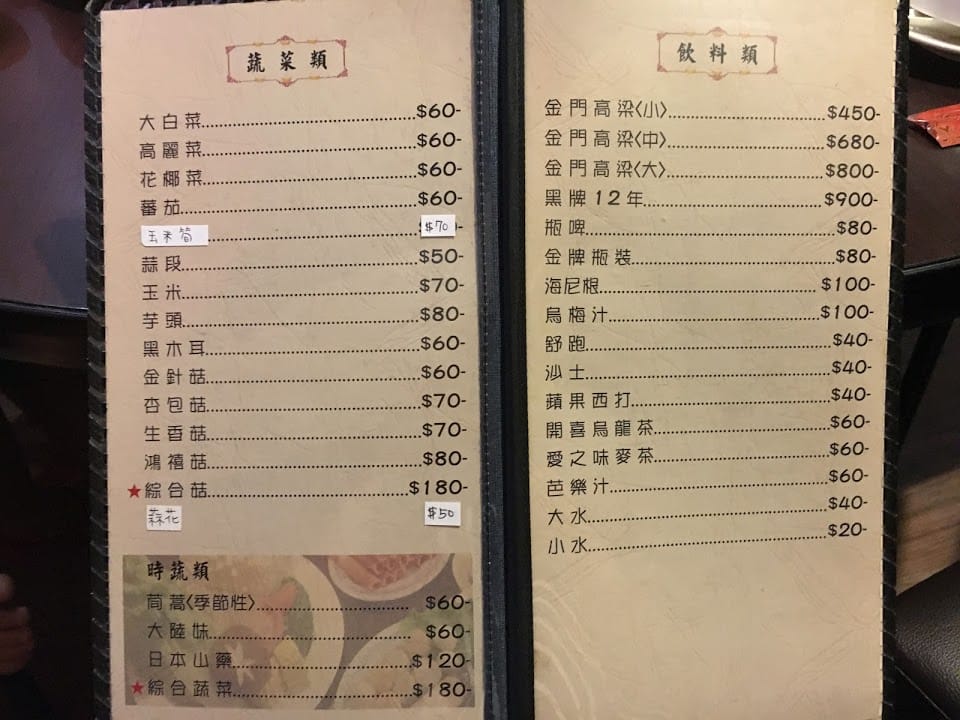 蔬菜類
大白菜 $60-
高麗菜 $60-
花椰菜 $60-
蕃茄 $60-
玉米筍 $70
蒜段 $50-
玉米 $70-
芋頭 $80-
黑木耳 $60-
金針菇 $60-
杏包菇 $70-
生香菇 $70-
鴻禧菇 $80-
★綜合菇 $180-
蒜花 $50
時蔬類
茼蒿〈季節性〉 $60-
大陸妹 $60-
日本山藥 $120-
★綜合蔬菜 $180-
飲料類
金門高梁〈小〉 $450-
金門高梁〈中〉 $680-
金門高梁〈大〉 $800-
黑牌12年 $900-
瓶啤 $80-
金牌瓶裝 $80-
海尼根 $100-
烏梅汁 $100-
舒跑 $40-
沙士 $40-
蘋果西打 $40-
開喜烏龍茶 $60-
愛之味麥茶 $60-
芭樂汁 $60-
大水 $40-
小水 $20-